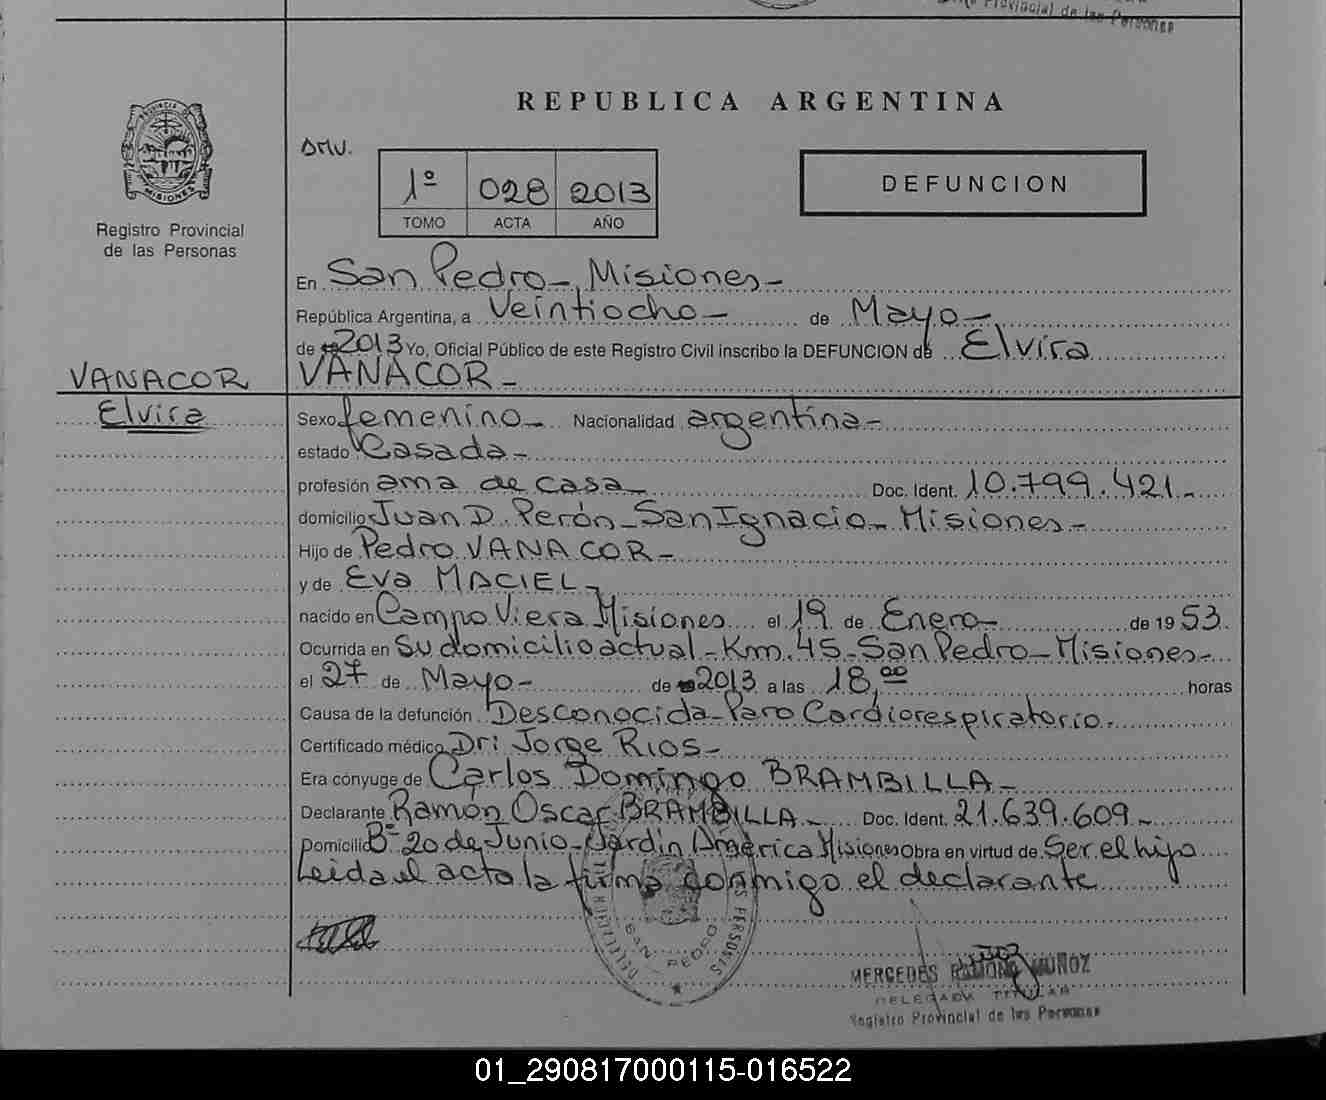 Provincial de las Personas
REPUBLICA ARGENTINA
PROVINCIA D
MISIONES
Registro Provincial
de las Personas
DMU.
1º 028 2013
TOMO ACTA AÑO
DEFUNCION
En San Pedro - Misiones -
República Argentina, a Veintiocho - de Mayo -
de 2013 Yo, Oficial Público de este Registro Civil inscribo la DEFUNCION de Elvira
VANACOR -
VANACOR
Elvira
Sexo femenino - Nacionalidad argentina -
estado Casada -
profesión ama de casa - Doc. Ident. 10.799.421 -
domicilio Juan D. Perón - San Ignacio - Misiones -
Hijo de Pedro VANACOR -
y de Eva MACIEL -
nacido en Campo Viera Misiones el 19 de Enero - de 19 53.
Ocurrida en Su domicilio actual - Km. 45 - San Pedro - Misiones -
el 27 de Mayo - de 2013 a las 18,00 horas
Causa de la defunción Desconocida - Paro Cardiorespiratorio.
Certificado médico Dr: Jorge RIOS -
Era cónyuge de Carlos Domingo BRAMBILLA -
Declarante Ramón Oscar BRAMBILLA - Doc. Ident. 21.639.609 -
Domicilio Bº 20 de Junio - Jardín América Misiones Obra en virtud de Ser el hijo
Leida el acta la firma conmigo el declarante
SAN PEDRO
MERCEDES RAMONA MUÑOZ
DELEGADA TITULAR
Registro Provincial de las Personas
01_290817000115-016522